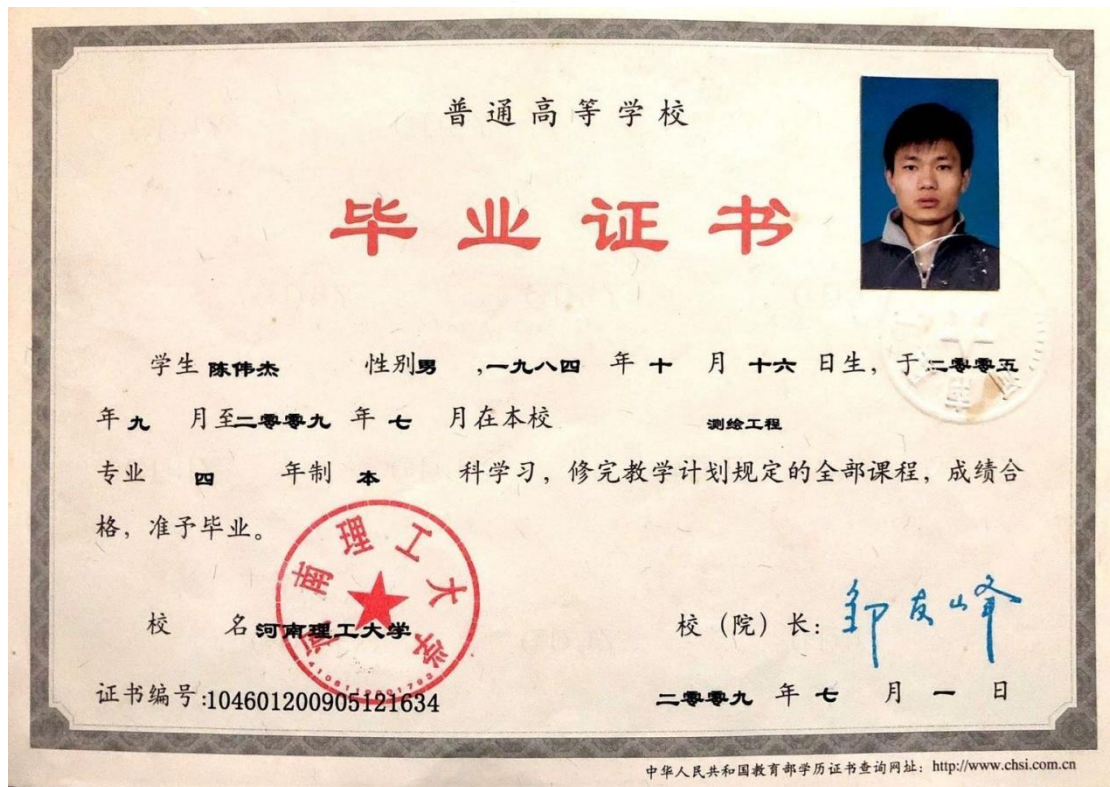 普通高等学校
毕业证书
学生 陈伟杰 性别男 ,一九八四 年 十 月 十六 日生，于 二零零五
年 九 月至二零零九 年 七 月在本校 测绘工程
专业 四 年制 本 科学习，修完教学计划规定的全部课程，成绩合
格，准予毕业。
河南理工大学
校 名 河南理工大学 校（院）长：邹友峰
证书编号:104601200905121634 二零零九 年 七 月 一 日
中华人民共和国教育部学历证书查询网址：http://www.chsi.com.cn